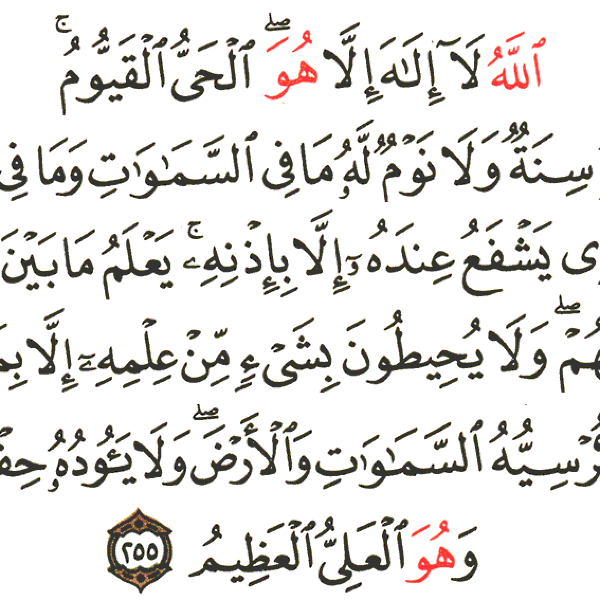 ٱللَّهُ لَآ إِلَـٰهَ إِلَّا هُوَ ۖ ٱلْحَىُّ ٱلْقَيُّومُ ۚ
سِنَةٌ وَلَا نَوْمٌ ۚ لَّهُۥ مَا فِى ٱلسَّمَـٰوَٰتِ وَمَا فِى
يَشْفَعُ عِندَهُۥٓ إِلَّا بِإِذْنِهِۦ ۚ يَعْلَمُ مَا بَيْنَ
هُمْ ۖ وَلَا يُحِيطُونَ بِشَىْءٍ مِّنْ عِلْمِهِۦٓ إِلَّا بِمَ
رْسِيُّهُ ٱلسَّمَـٰوَٰتِ وَٱلْأَرْضَ ۖ وَلَا يَـُٔودُهُۥ حِفْ
وَهُوَ ٱلْعَلِىُّ ٱلْعَظِيمُ ٢٥٥